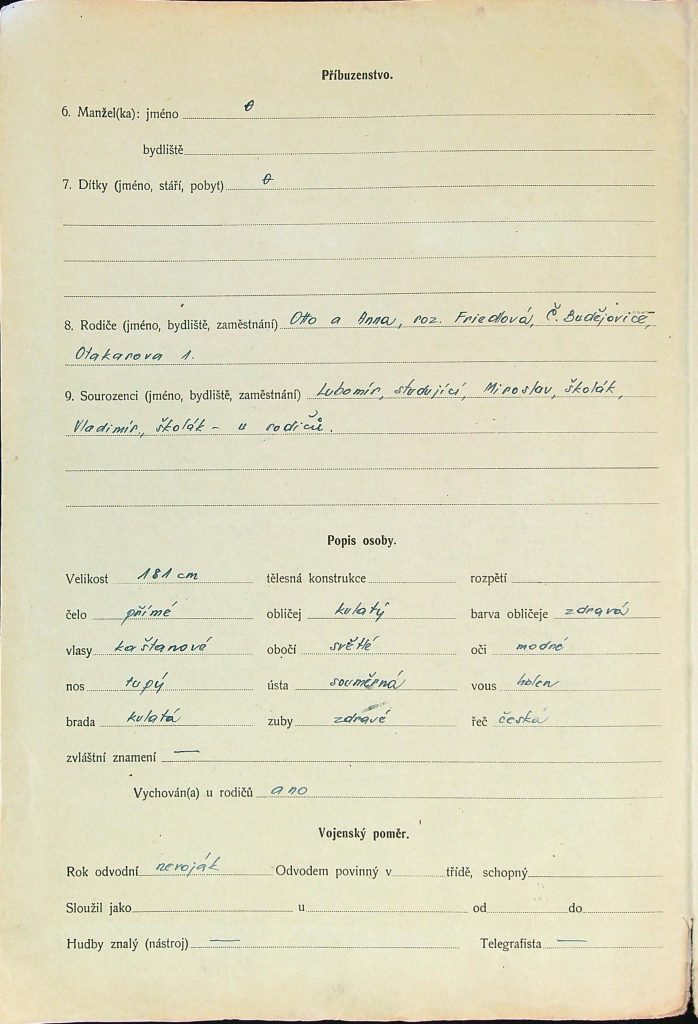 Příbuzenstvo.
6. Manžel(ka): jméno 0
bydliště
7. Dítky (jméno, stáří, pobyt) 0
8. Rodiče (jméno, bydliště, zaměstnání) Otto a Anna, roz. Friedlová, Č. Budějovice,
Otakarova 1.
9. Sourozenci (jméno, bydliště, zaměstnání) Lubomír, studující, Miroslav, školák,
Vladimír, školák - u rodičů.
Popis osoby.
Velikost 181 cm tělesná konstrukce rozpětí
čelo přímé obličej kulatý barva obličeje zdravá
vlasy kaštanové obočí světlé oči modré
nos tupý ústa souměrná vous holen
brada kulatá zuby zdravé řeč česká
zvláštní znamení —
Vychován(a) u rodičů ano
Vojenský poměr.
Rok odvodní nevoják Odvodem povinný v třídě, schopný
Sloužil jako u od do
Hudby znalý (nástroj) — Telegrafista —